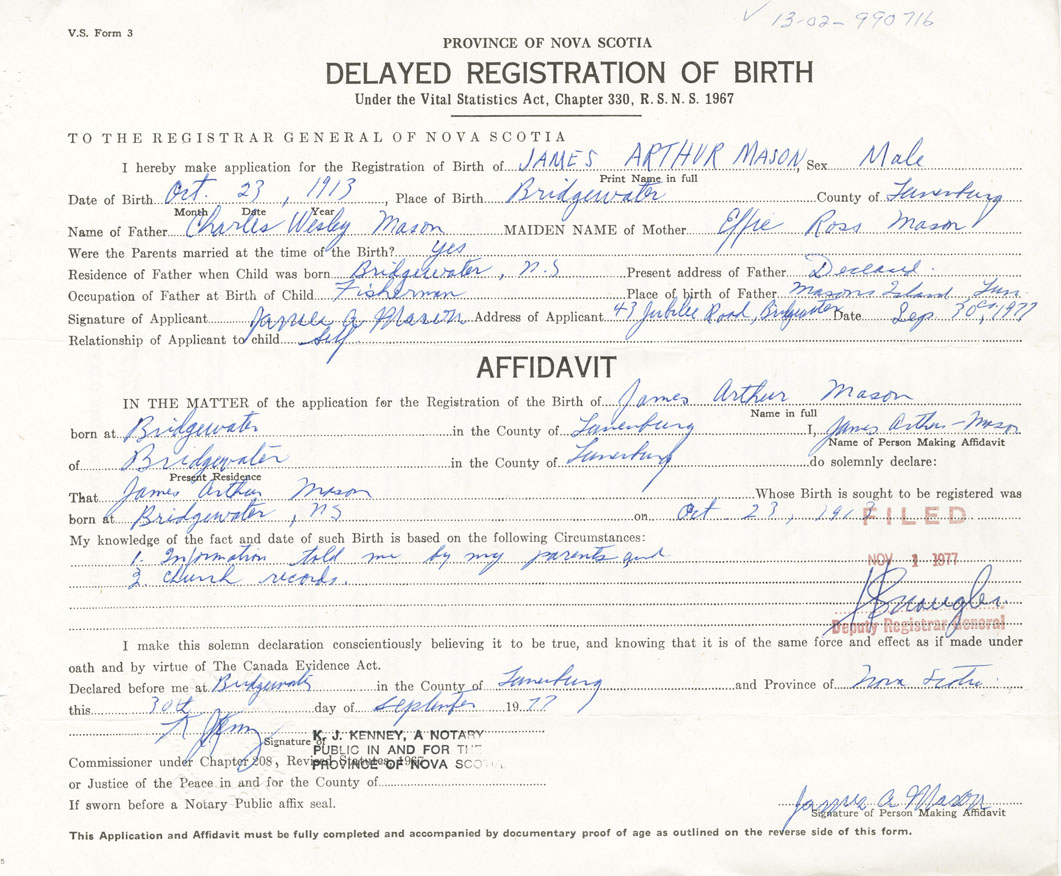 ✓ 13-02-990716
V.S. Form 3
PROVINCE OF NOVA SCOTIA
DELAYED REGISTRATION OF BIRTH
Under the Vital Statistics Act, Chapter 330, R.S.N.S. 1967
TO THE REGISTRAR GENERAL OF NOVA SCOTIA
I hereby make application for the Registration of Birth of JAMES ARTHUR MASON, Sex Male
Print Name in full
Date of Birth Oct. 23, 1913, Place of Birth Bridgewater County of Lunenburg
Month Date Year
Name of Father Charles Wesley Mason MAIDEN NAME of Mother Effie Ross Mason
Were the Parents married at the time of the Birth? yes
Residence of Father when Child was born Bridgewater, N.S Present address of Father Deceased.
Occupation of Father at Birth of Child Fisherman Place of birth of Father Masons Island, Lun.
Signature of Applicant James A Mason Address of Applicant 43 Jubilee Road, Bridgewater Date Sep. 30, 1977
Relationship of Applicant to child self
AFFIDAVIT
IN THE MATTER of the application for the Registration of the Birth of James Arthur Mason
Name in full
born at Bridgewater in the County of Lunenburg I, James Arthur Mason
Name of Person Making Affidavit
of Bridgewater in the County of Lunenburg do solemnly declare:
Present Residence
That James Arthur Mason Whose Birth is sought to be registered was
born at Bridgewater, NS on Oct 23, 1913
FILED
My knowledge of the fact and date of such Birth is based on the following Circumstances:
1. Information told me by my parents and
NOV 1 1977
2 church records.
Deputy Registrar General
I make this solemn declaration conscientiously believing it to be true, and knowing that it is of the same force and effect as if made under
oath and by virtue of The Canada Evidence Act.
Declared before me at Bridgewater in the County of Lunenburg and Province of Nova Scotia
this 30th day of September 1977
Signature of
K. J. KENNEY, A NOTARY
PUBLIC IN AND FOR THE
PROVINCE OF NOVA SCOTIA
Commissioner under Chapter 208, Revised Statutes, 1967
or Justice of the Peace in and for the County of
If sworn before a Notary Public affix seal.
James A Mason
Signature of Person Making Affidavit
This Application and Affidavit must be fully completed and accompanied by documentary proof of age as outlined on the reverse side of this form.